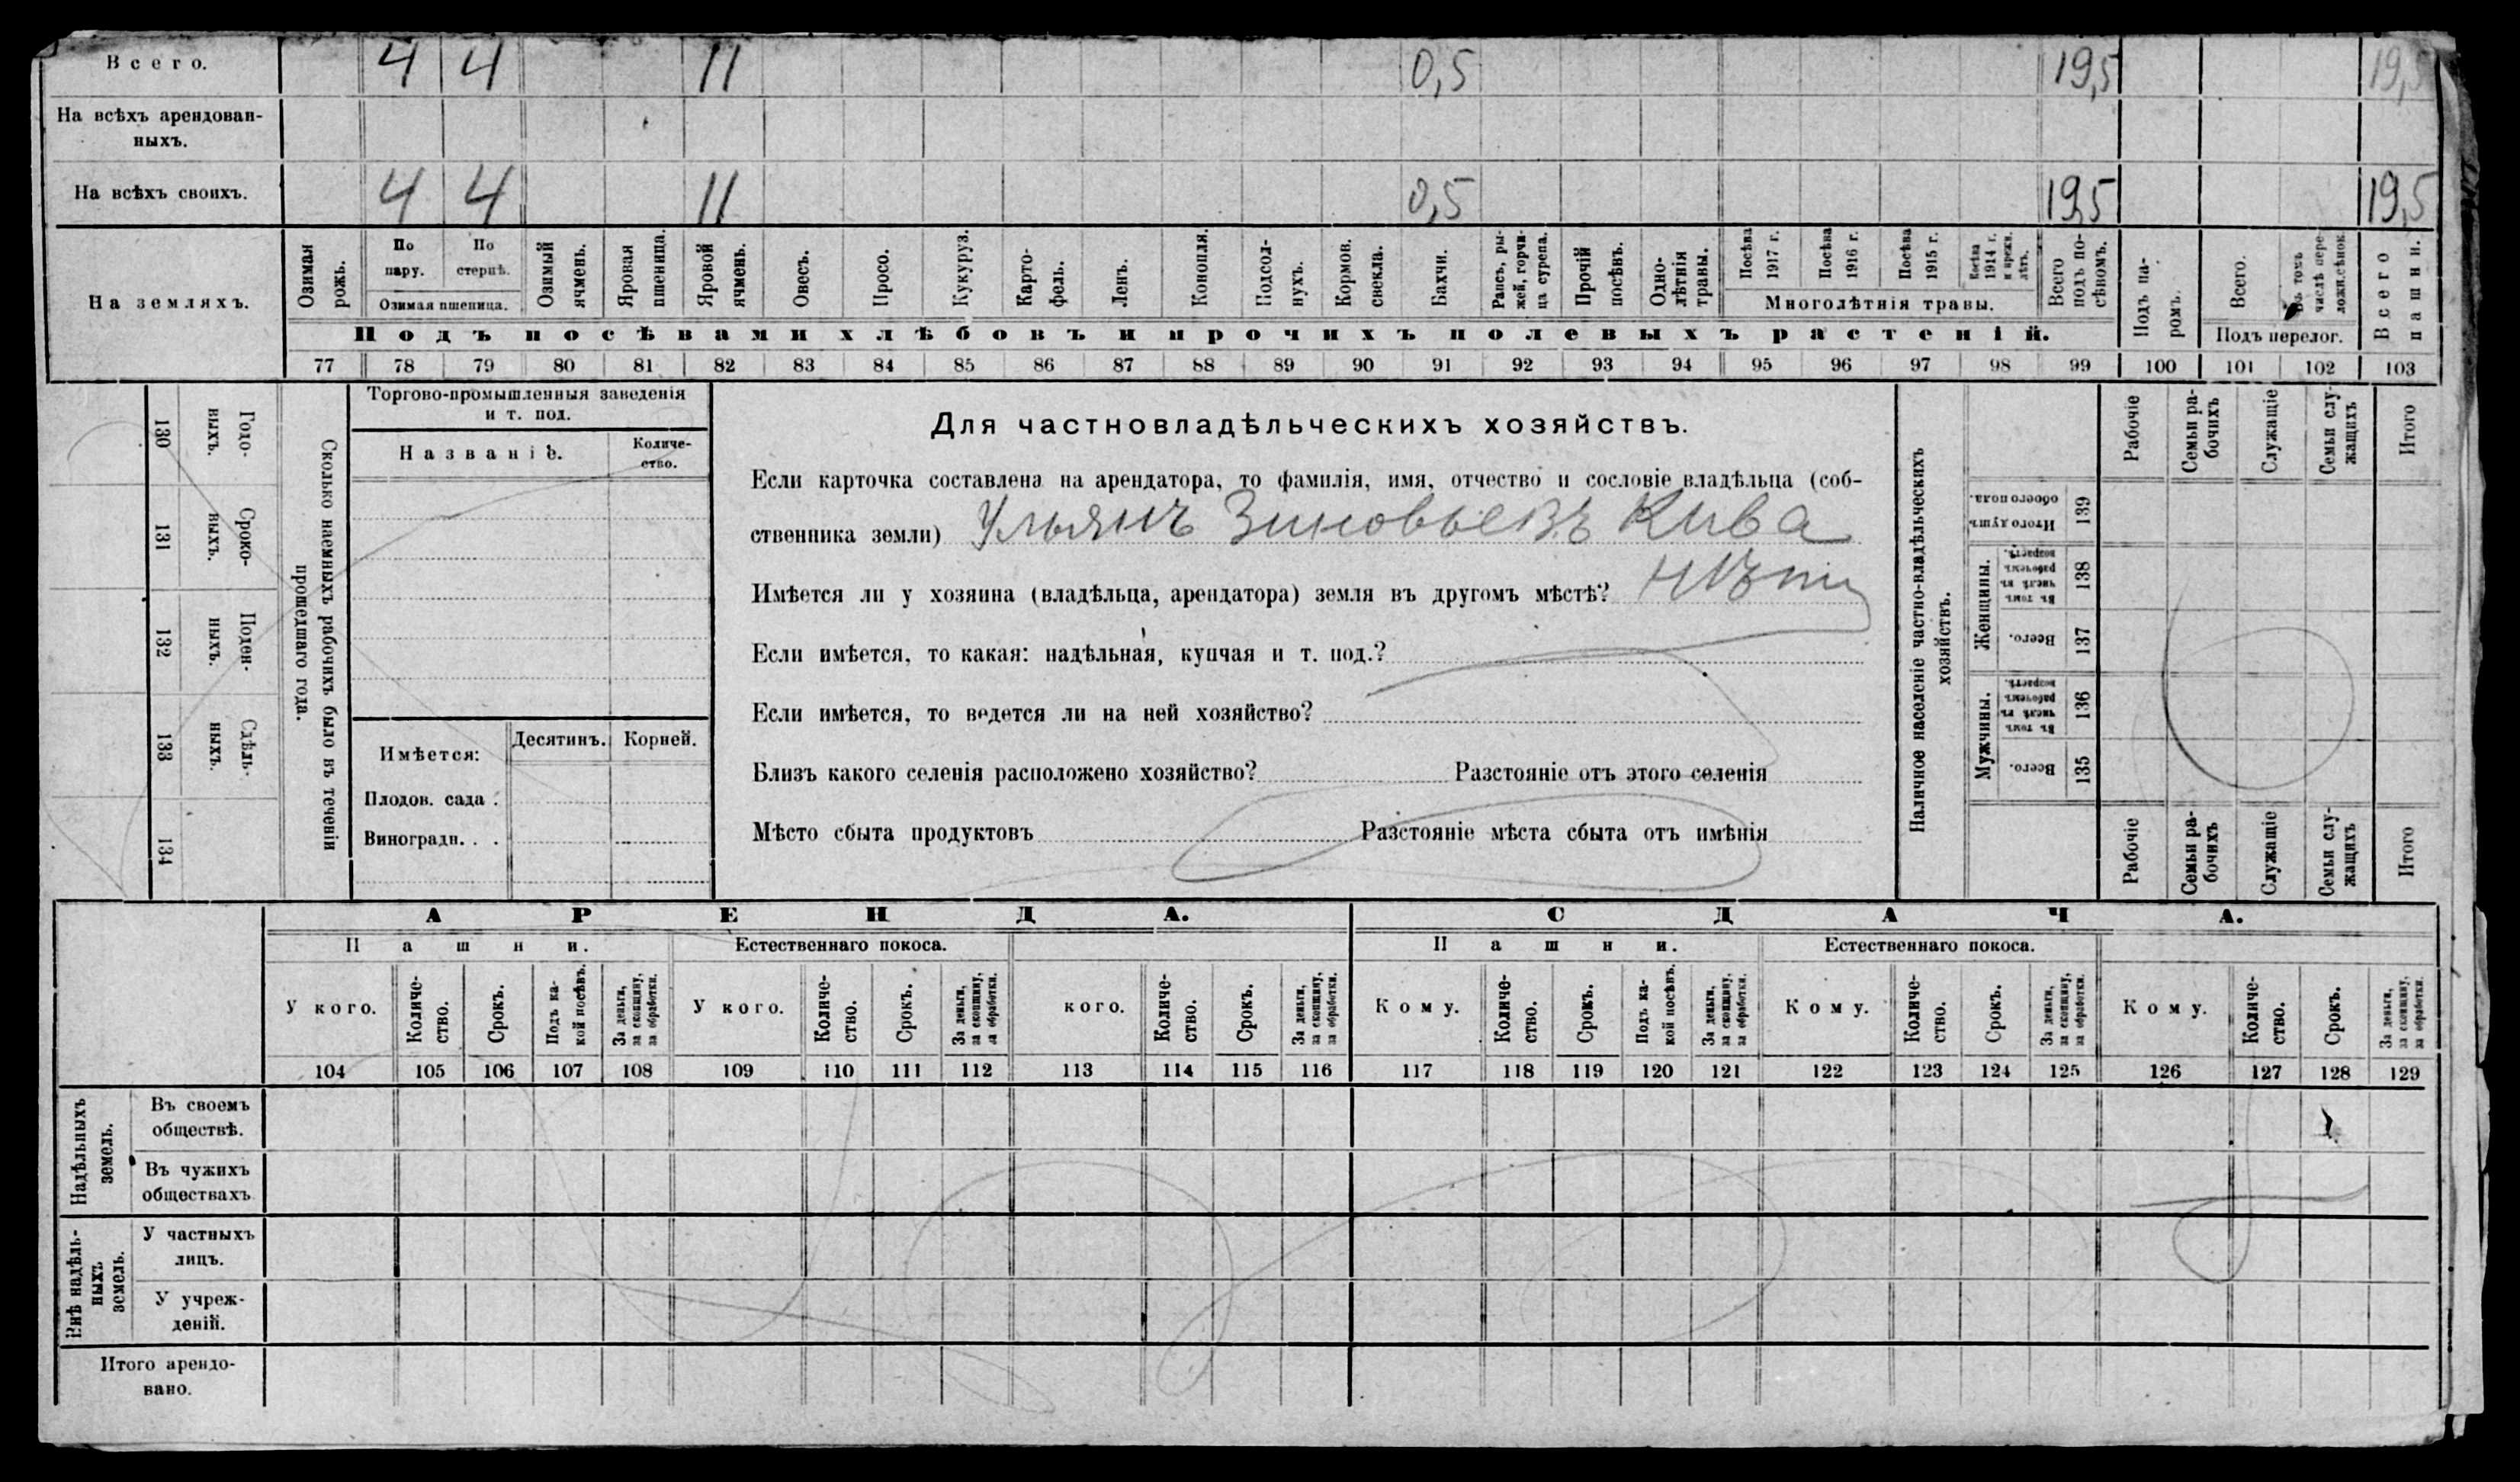 Всего. 4 4 11 0,5 19,5 19,5
На всѣхъ арендован-
ныхъ.
На всѣхъ своихъ. 4 4 11 0,5 19,5 19,5
На земляхъ.
Озимая рожь.
По пару.
По стернѣ.
Озимая пшеница.
Озимый ячмень.
Яровая пшеница.
Яровой ячмень.
Овесъ.
Просо.
Кукуруз.
Карто-
фель.
Ленъ.
Конопля.
Подсол-
нухъ.
Кормов. свекла.
Бахчи.
Рапсъ, ры-
жей, горчи-
ца сурепа.
Прочій посѣвъ.
Одно-
лѣтнія травы.
Посѣва 1917 г.
Посѣва 1916 г.
Посѣва 1915 г.
Посѣва 1914 г. и прежн. лѣтъ.
Многолѣтнія травы.
Всего подъ по-
сѣвомъ.
Подъ посѣвами хлѣбовъ и прочихъ полевыхъ растеній.
Подъ па-
ромъ.
Всего.
Въ томъ числѣ пере-
ложн.сѣнок.
Подъ перелог.
Всего пашни.
77 78 79 80 81 82 83 84 85 86 87 88 89 90 91 92 93 94 95 96 97 98 99 100 101 102 103
130 Годо-
ныхъ.
131 Сроко-
выхъ.
132 Поден-
ныхъ.
133 Сдѣль-
ныхъ.
134
Сколько наемныхъ рабочихъ было въ теченіи
прошедшаго года.
Торгово-промышленныя заведенія
и т. под.
Названіе.
Количе-
ство.
Имѣется: Десятинъ. Корней.
Плодов. сада .
Виноградн. . .
Для частновладѣльческихъ хозяйствъ.
Если карточка составлена на арендатора, то фамилія, имя, отчество и сословіе владѣльца (соб-
ственника земли) Ульянъ Зиновьевъ Кива
Имѣется ли у хозяина (владѣльца, арендатора) земля въ другомъ мѣстѣ? нѣтъ
Если имѣется, то какая: надѣльная, купчая и т. под.?
Если имѣется, то ведется ли на ней хозяйство?
Близъ какого селенія расположено хозяйство? Разстояніе отъ этого селенія
Мѣсто сбыта продуктовъ Разстояніе мѣста сбыта отъ имѣнія
Наличное населеніе частно-владѣльческихъ
хозяйствъ.
Рабочіе
Семьи ра-
бочихъ
Служащіе
Семьи слу-
жащихъ
Итого
Итого душъ обоего пола. 139
Женщины.
Въ томъ числѣ въ рабочемъ возрастѣ. 138
Всего. 137
Мужчины.
Въ томъ числѣ въ рабочемъ возрастѣ. 136
Всего. 135
Рабочіе
Семьи ра-
бочихъ
Служащіе
Семьи слу-
жащихъ
Итого
АРЕНДА. СДАЧА.
Пашни. Естественнаго покоса. Пашни. Естественнаго покоса.
У кого.
Количе-
ство.
Срокъ.
Подъ ка-
кой посѣвъ.
За деньги, за скопщину, за обработки.
У кого.
Количе-
ство.
Срокъ.
За деньги, за скопщину, за обработки.
кого.
Количе-
ство.
Срокъ.
За деньги, за скопщину, за обработки.
Кому.
Количе-
ство.
Срокъ.
Подъ ка-
кой посѣвъ.
За деньги, за скопщину, за обработки.
Кому.
Количе-
ство.
Срокъ.
За деньги, за скопщину, за обработки.
Кому.
Количе-
ство.
Срокъ.
За деньги, за скопщину, за обработки.
104 105 106 107 108 109 110 111 112 113 114 115 116 117 118 119 120 121 122 123 124 125 126 127 128 129
Надѣльныхъ
земель.
Въ своемъ
обществѣ.
Въ чужихъ
обществахъ
Внѣ надѣль-
ныхъ
земель.
У частныхъ
лицъ.
У учреж-
деній.
Итого арендо-
вано.